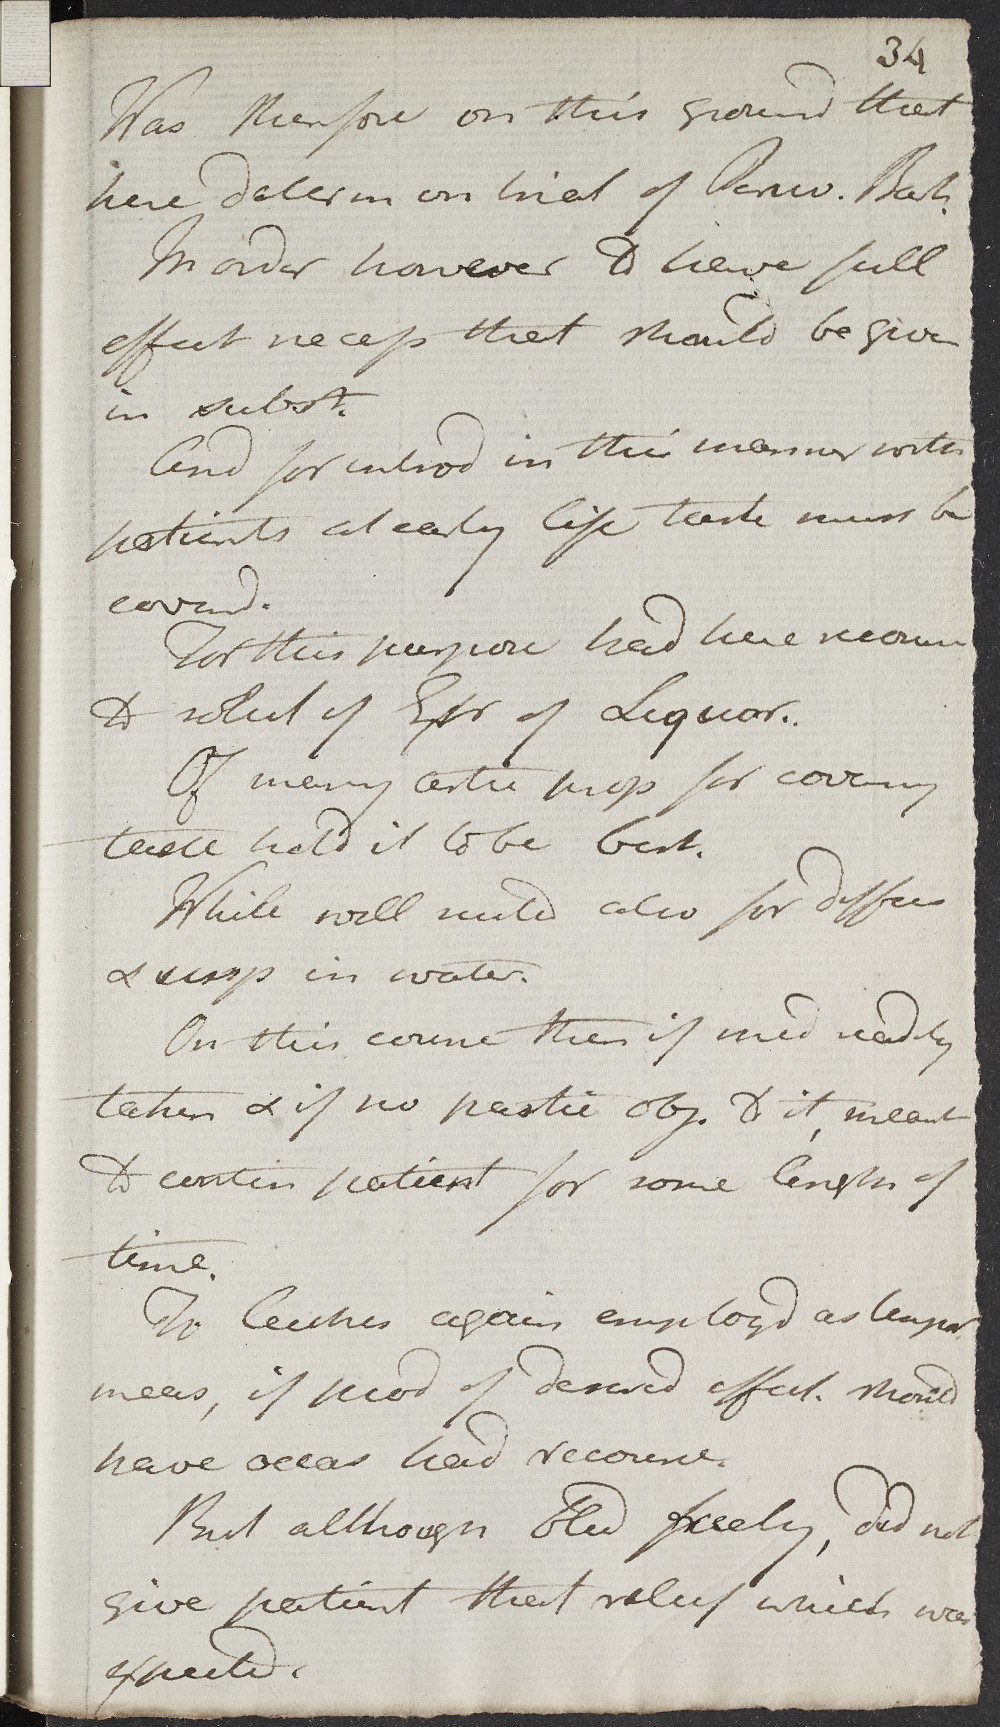 34
Was therefore on this ground that
here determ on trial of Peruv. Bark.
In order however to have full
effect necess that should be given
in subst.
And for introd in this manner with
patients at early life taste must be
coverd.
For this purpose had here recour
to solut of Extr of Liquor.
Of many artic prop for covering
taste hold it to be best.
While well suited also for diffus
& susp in water.
On this course then if med readily
taken & if no partic obj. to it, meant
to contin patient for some length of
time.
To leeches again employd as tempor
meas, if prod of desired effect. should
have occas had recourse.
But although bled freely, did not
give patient that relief which was
expected.